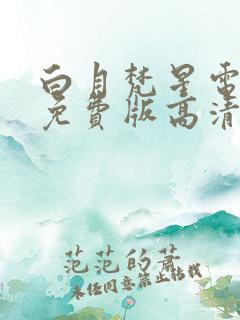 白月梵星電
免費版高清
范范的蕭
未经同意禁止转载